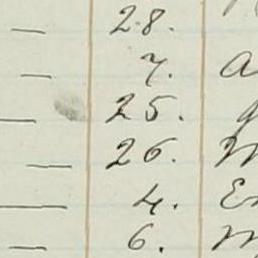 — 28.
— 7. a
— 25. g
— 26. M
— 4. En
— 6. M